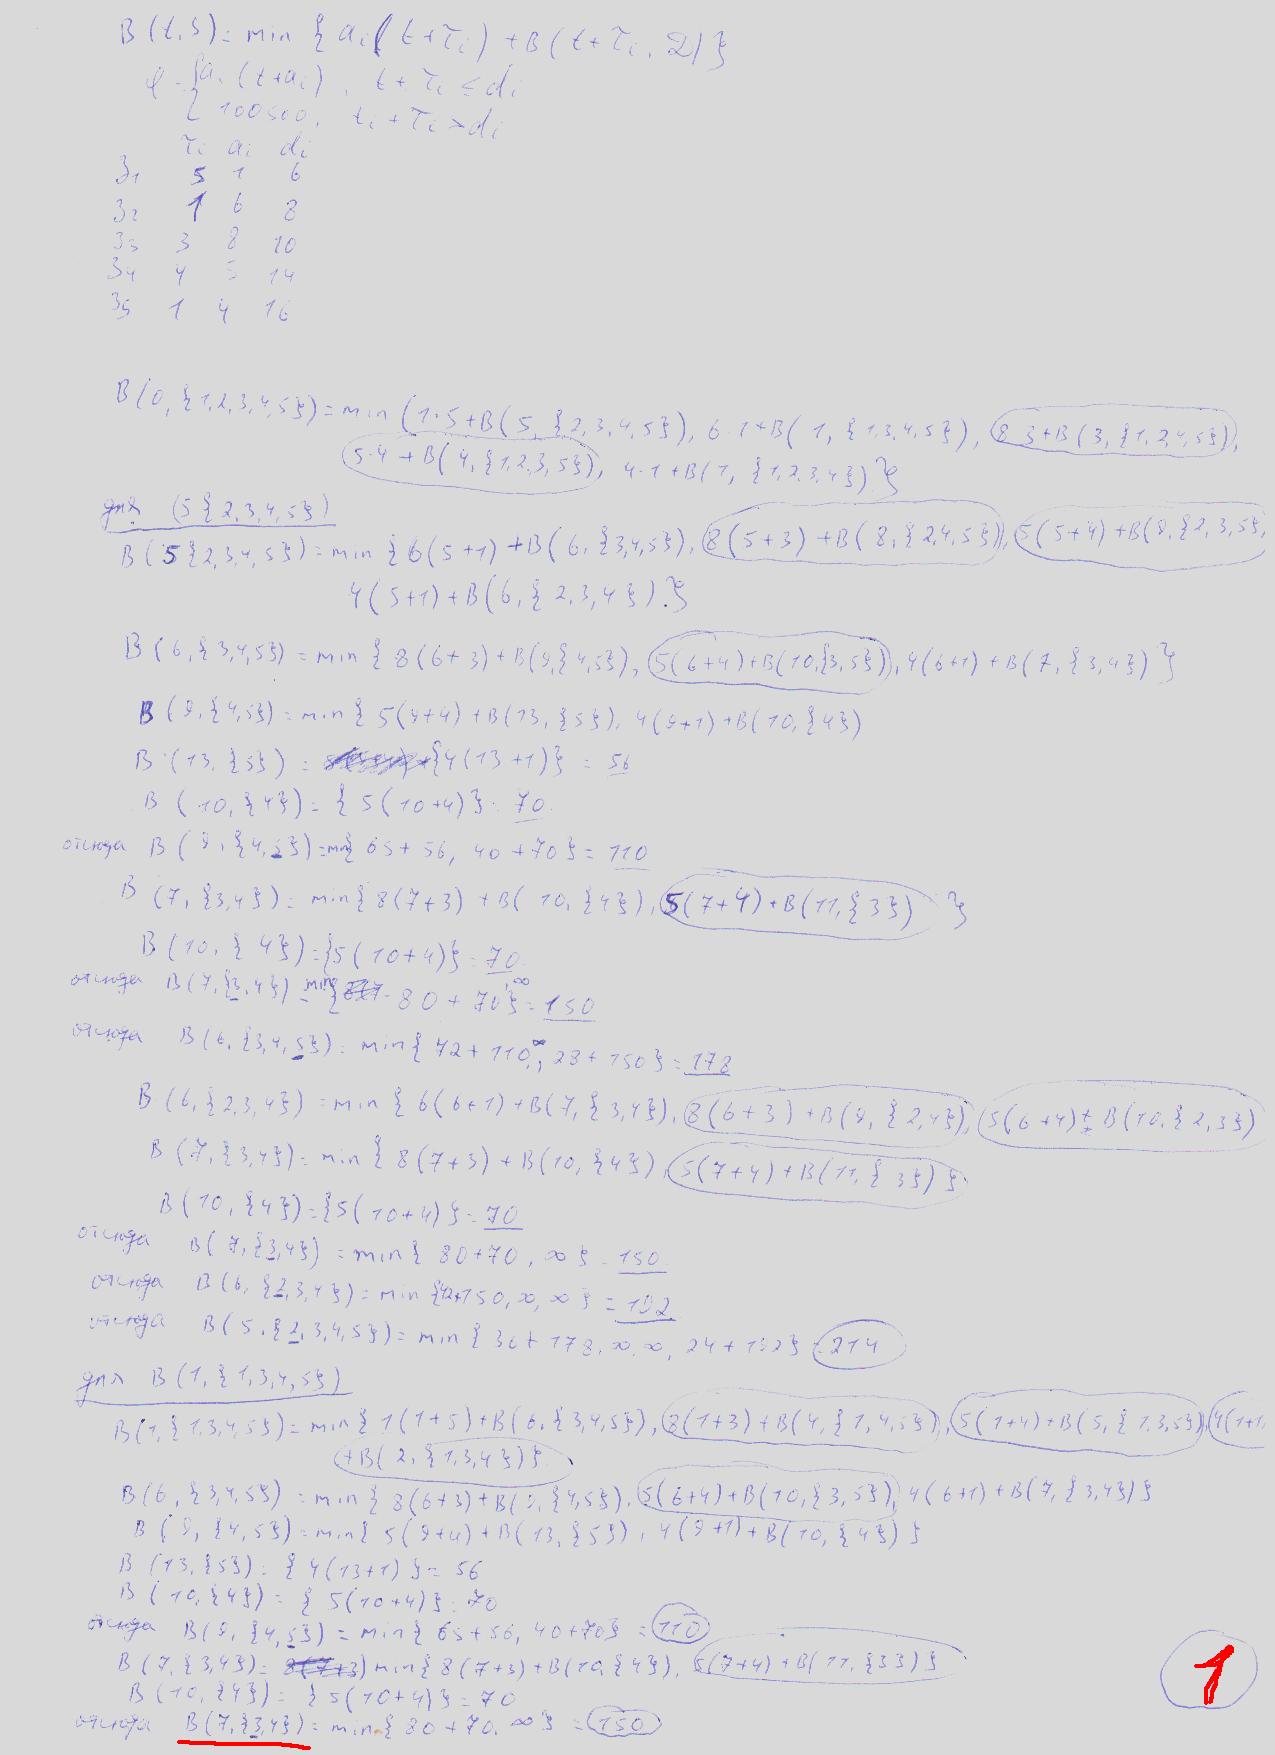 B(t,S)= min { ai(t+τi) +B(t+τi, Ω)}
φ = { ai(t+ai), t+τi ≤ di
{ 100500, ti+τi > di
τi ai di
З1 5 1 6
З2 1 6 8
З3 3 8 10
З4 4 5 14
З5 1 4 16
B(0,{1,2,3,4,5})= min (1·5+B(5,{2,3,4,5}), 6·1+B(1,{1,3,4,5}), 8·3+B(3,{1,2,4,5}),
5·4+B(4,{1,2,3,5}), 4·1+B(1,{1,2,3,4})}
для (5{2,3,4,5})
B(5{2,3,4,5})=min {6(5+1)+B(6,{3,4,5}), 8(5+3)+B(8,{2,4,5}), 5(5+4)+B(9,{2,3,5},
4(5+1)+B(6,{2,3,4})}
B(6,{3,4,5})=min{8(6+3)+B(9,{4,5}), 5(6+4)+B(10,{3,5}), 4(6+1)+B(7,{3,4})}
B(9,{4,5})=min{5(9+4)+B(13,{5}), 4(9+1)+B(10,{4})
B(13,{5})= {4(13+1)} = 56
B(10,{4})={5(10+4)}=70
отсюда B(9,{4,5})=min{65+56, 40+70}=110
B(7,{3,4})=min{8(7+3)+B(10,{4}), 5(7+4)+B(11,{3}) }
B(10,{4})={5(10+4)}=70
отсюда B(7,{3,4})=min{ 80+70, ∞}=150
отсюда B(6,{3,4,5})=min{72+110, ∞, 28+150}=178
B(6,{2,3,4})=min{6(6+1)+B(7,{3,4}), 8(6+3)+B(9,{2,4}), 5(6+4)+B(10,{2,3})
B(7,{3,4})=min{8(7+3)+B(10,{4}), 5(7+4)+B(11,{3})}
B(10,{4})={5(10+4)}=70
отсюда B(7,{3,4})=min{80+70, ∞}=150
отсюда B(6,{2,3,4})=min{42+150, ∞, ∞}=192
отсюда B(5,{2,3,4,5})=min{36+178, ∞, ∞, 24+192}=214
для B(1,{1,3,4,5})
B(1,{1,3,4,5})=min{1(1+5)+B(6,{3,4,5}), 8(1+3)+B(4,{1,4,5}), 5(1+4)+B(5,{1,3,5}), 4(1+1)
+B(2,{1,3,4})}
B(6,{3,4,5})=min{8(6+3)+B(9,{4,5}), 5(6+4)+B(10,{3,5}), 4(6+1)+B(7,{3,4})}
B(9,{4,5})=min{5(9+4)+B(13,{5}), 4(9+1)+B(10,{4})}
B(13,{5})={4(13+1)}=56
B(10,{4})={5(10+4)}=70
отсюда B(9,{4,5})=min{65+56, 40+70}=110
B(7,{3,4})= 8(7+3) min{8(7+3)+B(10,{4}), 5(7+4)+B(11,{3})}
B(10,{4})={5(10+4)}=70
отсюда B(7,{3,4})=min{80+70, ∞}=150
1